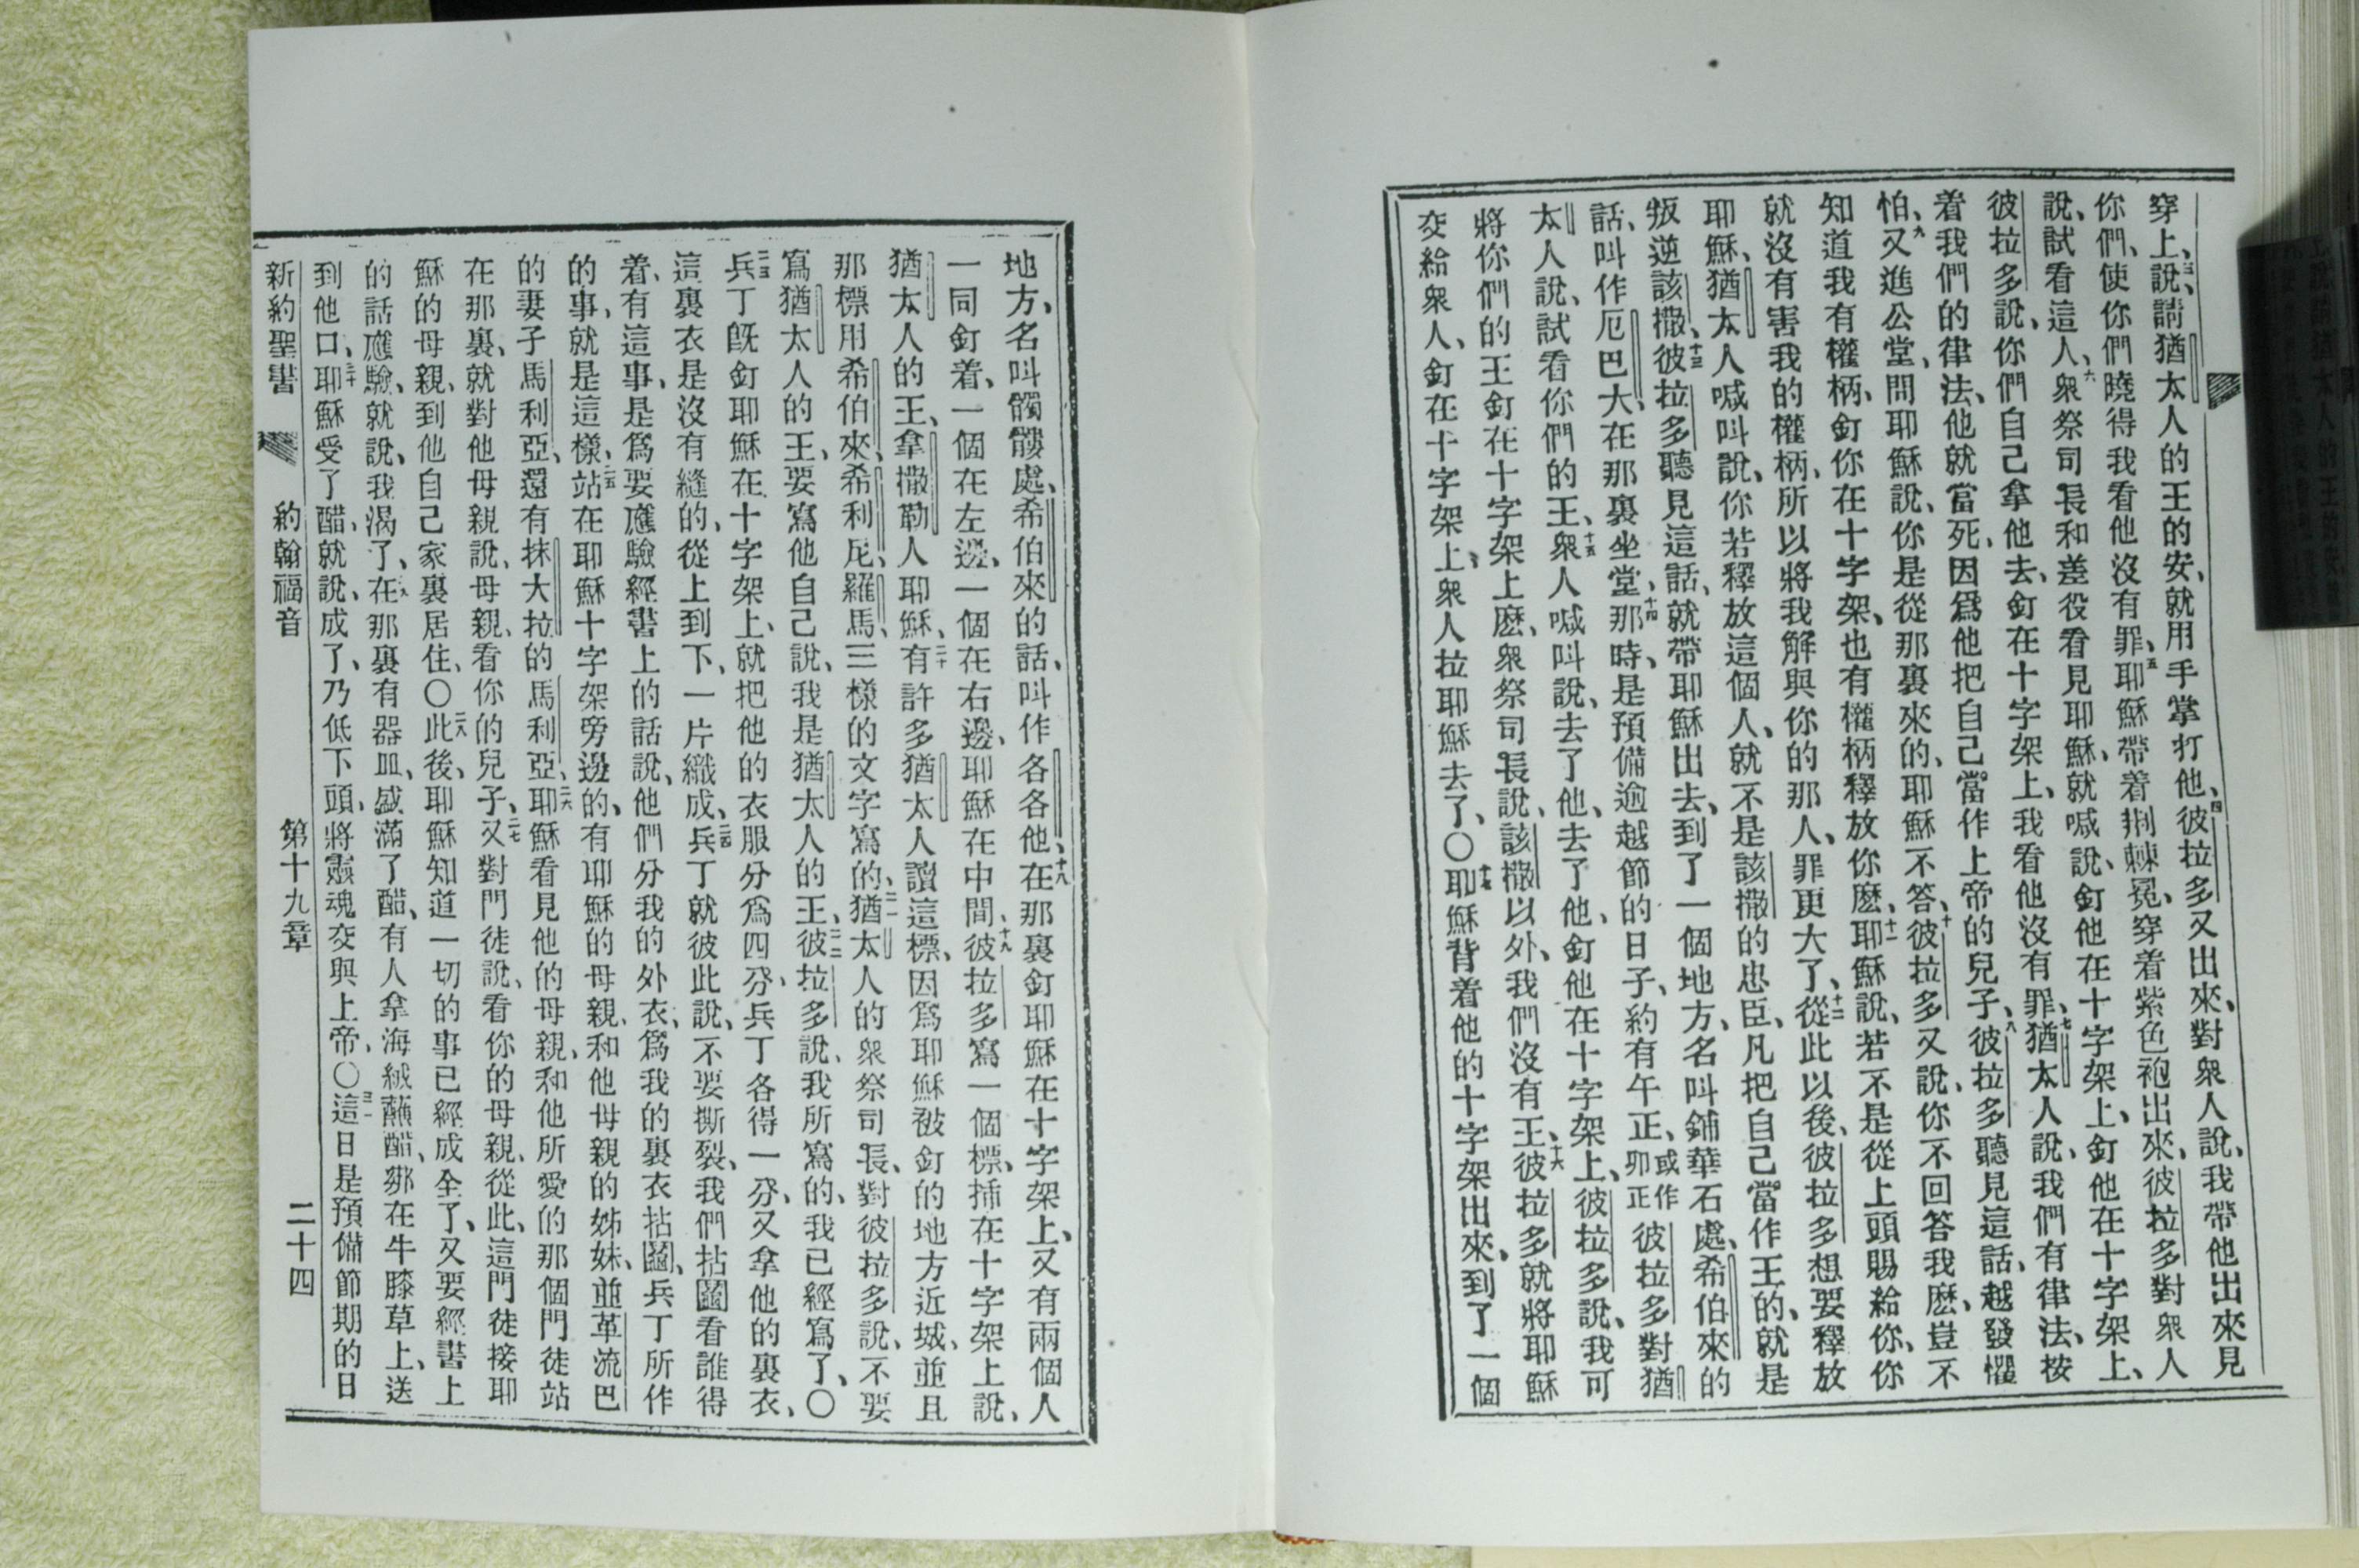 穿上、三說、請猶太人的王的安、就用手掌打他、四彼拉多又出來、對衆人說、我帶他出來見
你們、使你們曉得我看他沒有罪、五耶穌帶着荆棘冕、穿着紫色袍出來、彼拉多對衆人
說、試看這人、六衆祭司長和差役看見耶穌、就喊說、釘他在十字架上、釘他在十字架上、
彼拉多說、你們自己拿他去、釘在十字架上、我看他沒有罪、七猶太人說、我們有律法、按
着我們的律法、他就當死、因爲他把自己當作上帝的兒子、八彼拉多聽見這話、越發懼
怕、九又進公堂、問耶穌說、你是從那裏來的、耶穌不答、十彼拉多又說、你不回答我麽、豈不
知道我有權柄、釘你在十字架、也有權柄釋放你麽、十一耶穌說、若不是從上頭賜給你、你
就沒有害我的權柄、所以將我解與你的那人、罪更大了、十二從此以後、彼拉多想要釋放
耶穌、猶太人喊叫說、你若釋放這個人、就不是該撒的忠臣、凡把自己當作王的、就是
叛逆該撒、十三彼拉多聽見這話、就帶耶穌出去、到了一個地方、名叫鋪華石處、希伯來的
話、叫作厄巴大、在那裏坐堂、十四那時、是預備逾越節的日子、約有午正、或作卯正彼拉多對猶
太人說、試看你們的王、十五衆人喊叫說、去了他、去了他、釘他在十字架上、彼拉多說、我可
將你們的王釘在十字架上麽、衆祭司長說、該撒以外、我們沒有王、十六彼拉多就將耶穌
交給衆人、釘在十字架上、衆人拉耶穌去了、〇十七耶穌背着他的十字架出來、到了一個
地方、名叫髑髏處、希伯來的話、叫作各各他、十八在那裏釘耶穌在十字架上、又有兩個人
一同釘着、一個在左邊、一個在右邊、耶穌在中間、十九彼拉多寫一個標、插在十字架上說、
猶太人的王、拿撒勒人耶穌、二十有許多猶太人讀這標、因爲耶穌被釘的地方近城、並且
那標用希伯來、希利尼、羅馬、三樣的文字寫的、二一猶太人的衆祭司長、對彼拉多說、不要
寫猶太人的王、要寫他自己說、我是猶太人的王、二二彼拉多說、我所寫的、我已經寫了、〇
二三兵丁旣釘耶穌在十字架上、就把他的衣服分爲四分、兵丁各得一分、又拿他的裏衣、
這裏衣是沒有縫的、從上到下、一片織成、二四兵丁就彼此說、不要撕裂、我們拈鬮看誰得
着、有這事、是爲要應驗經書上的話說、他們分我的外衣、爲我的裏衣拈鬮、兵丁所作
的事、就是這樣、二五站在耶穌十字架旁邊的、有耶穌的母親、和他母親的姊妹、並革流巴
的妻子馬利亞、還有抹大拉的馬利亞、二六耶穌看見他的母親、和他所愛的那個門徒站
在那裏、就對他母親說、母親、看你的兒子、二七又對門徒說、看你的母親、從此、這門徒接耶
穌的母親、到他自己家裏居住、〇二八此後、耶穌知道一切的事已經成全了、又要經書上
的話應驗、就說、我渴了、二九在那裏有器皿、盛滿了醋、有人拿海絨蘸醋、綁在牛膝草上、送
到他口、三十耶穌受了醋、就說、成了、乃低下頭、將靈魂交與上帝、〇三一這日是預備節期的日
新約聖書 約翰福音 第十九章 二十四